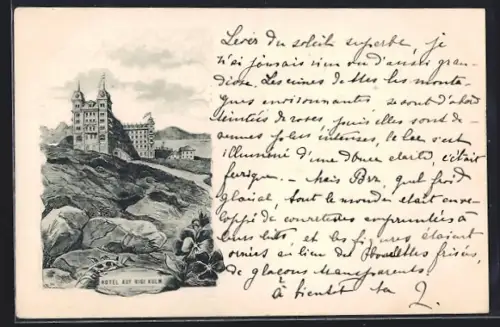 Lever du soleil superbe, je
n'ai jamais rien vu d'aussi gran-
diose. Les cimes de ttes les monta-
gnes environnantes, se sont d'abord
teintées de roses puis elles sont de-
venues plus intenses, le lac s'est
illuminé d'une douce clarté, c'était
féerique. - Mais Brr, quel froid
glacial, tout le monde était enve-
loppé de couvertures empruntées à
leurs lits et les figures étaient
ornées au lieu de frisés,
de glaçons transparents
À bientôt ta
HOTEL AUF RIGI KULM